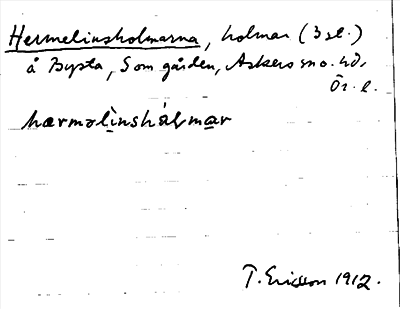 Hermelinsholmarna, holmar (3 st.)
å Bysta, Som gården, Askers sn o. hd,
Ör. l.
hærmolìnshálmar
T. Ericsson 1912.